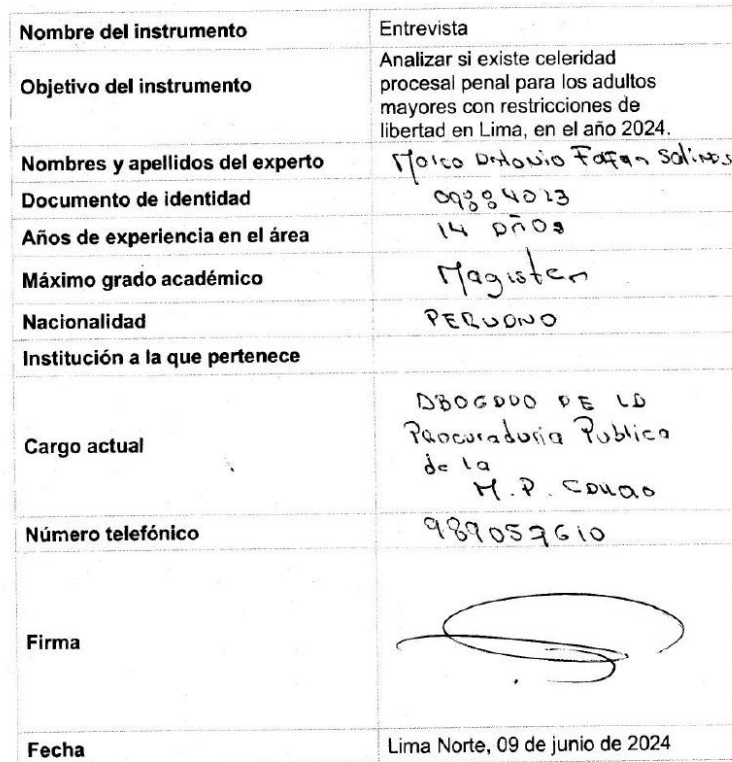 Nombre del instrumento
Entrevista
Objetivo del instrumento
Analizar si existe celeridad
procesal penal para los adultos
mayores con restricciones de
libertad en Lima, en el año 2024.
Nombres y apellidos del experto
Marco Antonio Farfan Salinas
Documento de identidad
Años de experiencia en el área
14 AÑOS
Máximo grado académico
Magister
Nacionalidad
PERUANO
Institución a la que pertenece
Cargo actual
ABOGADO DE LA
Procuraduria Publica
de la
M.P. Callao
Número telefónico
Firma
Fecha
Lima Norte, 09 de junio de 2024